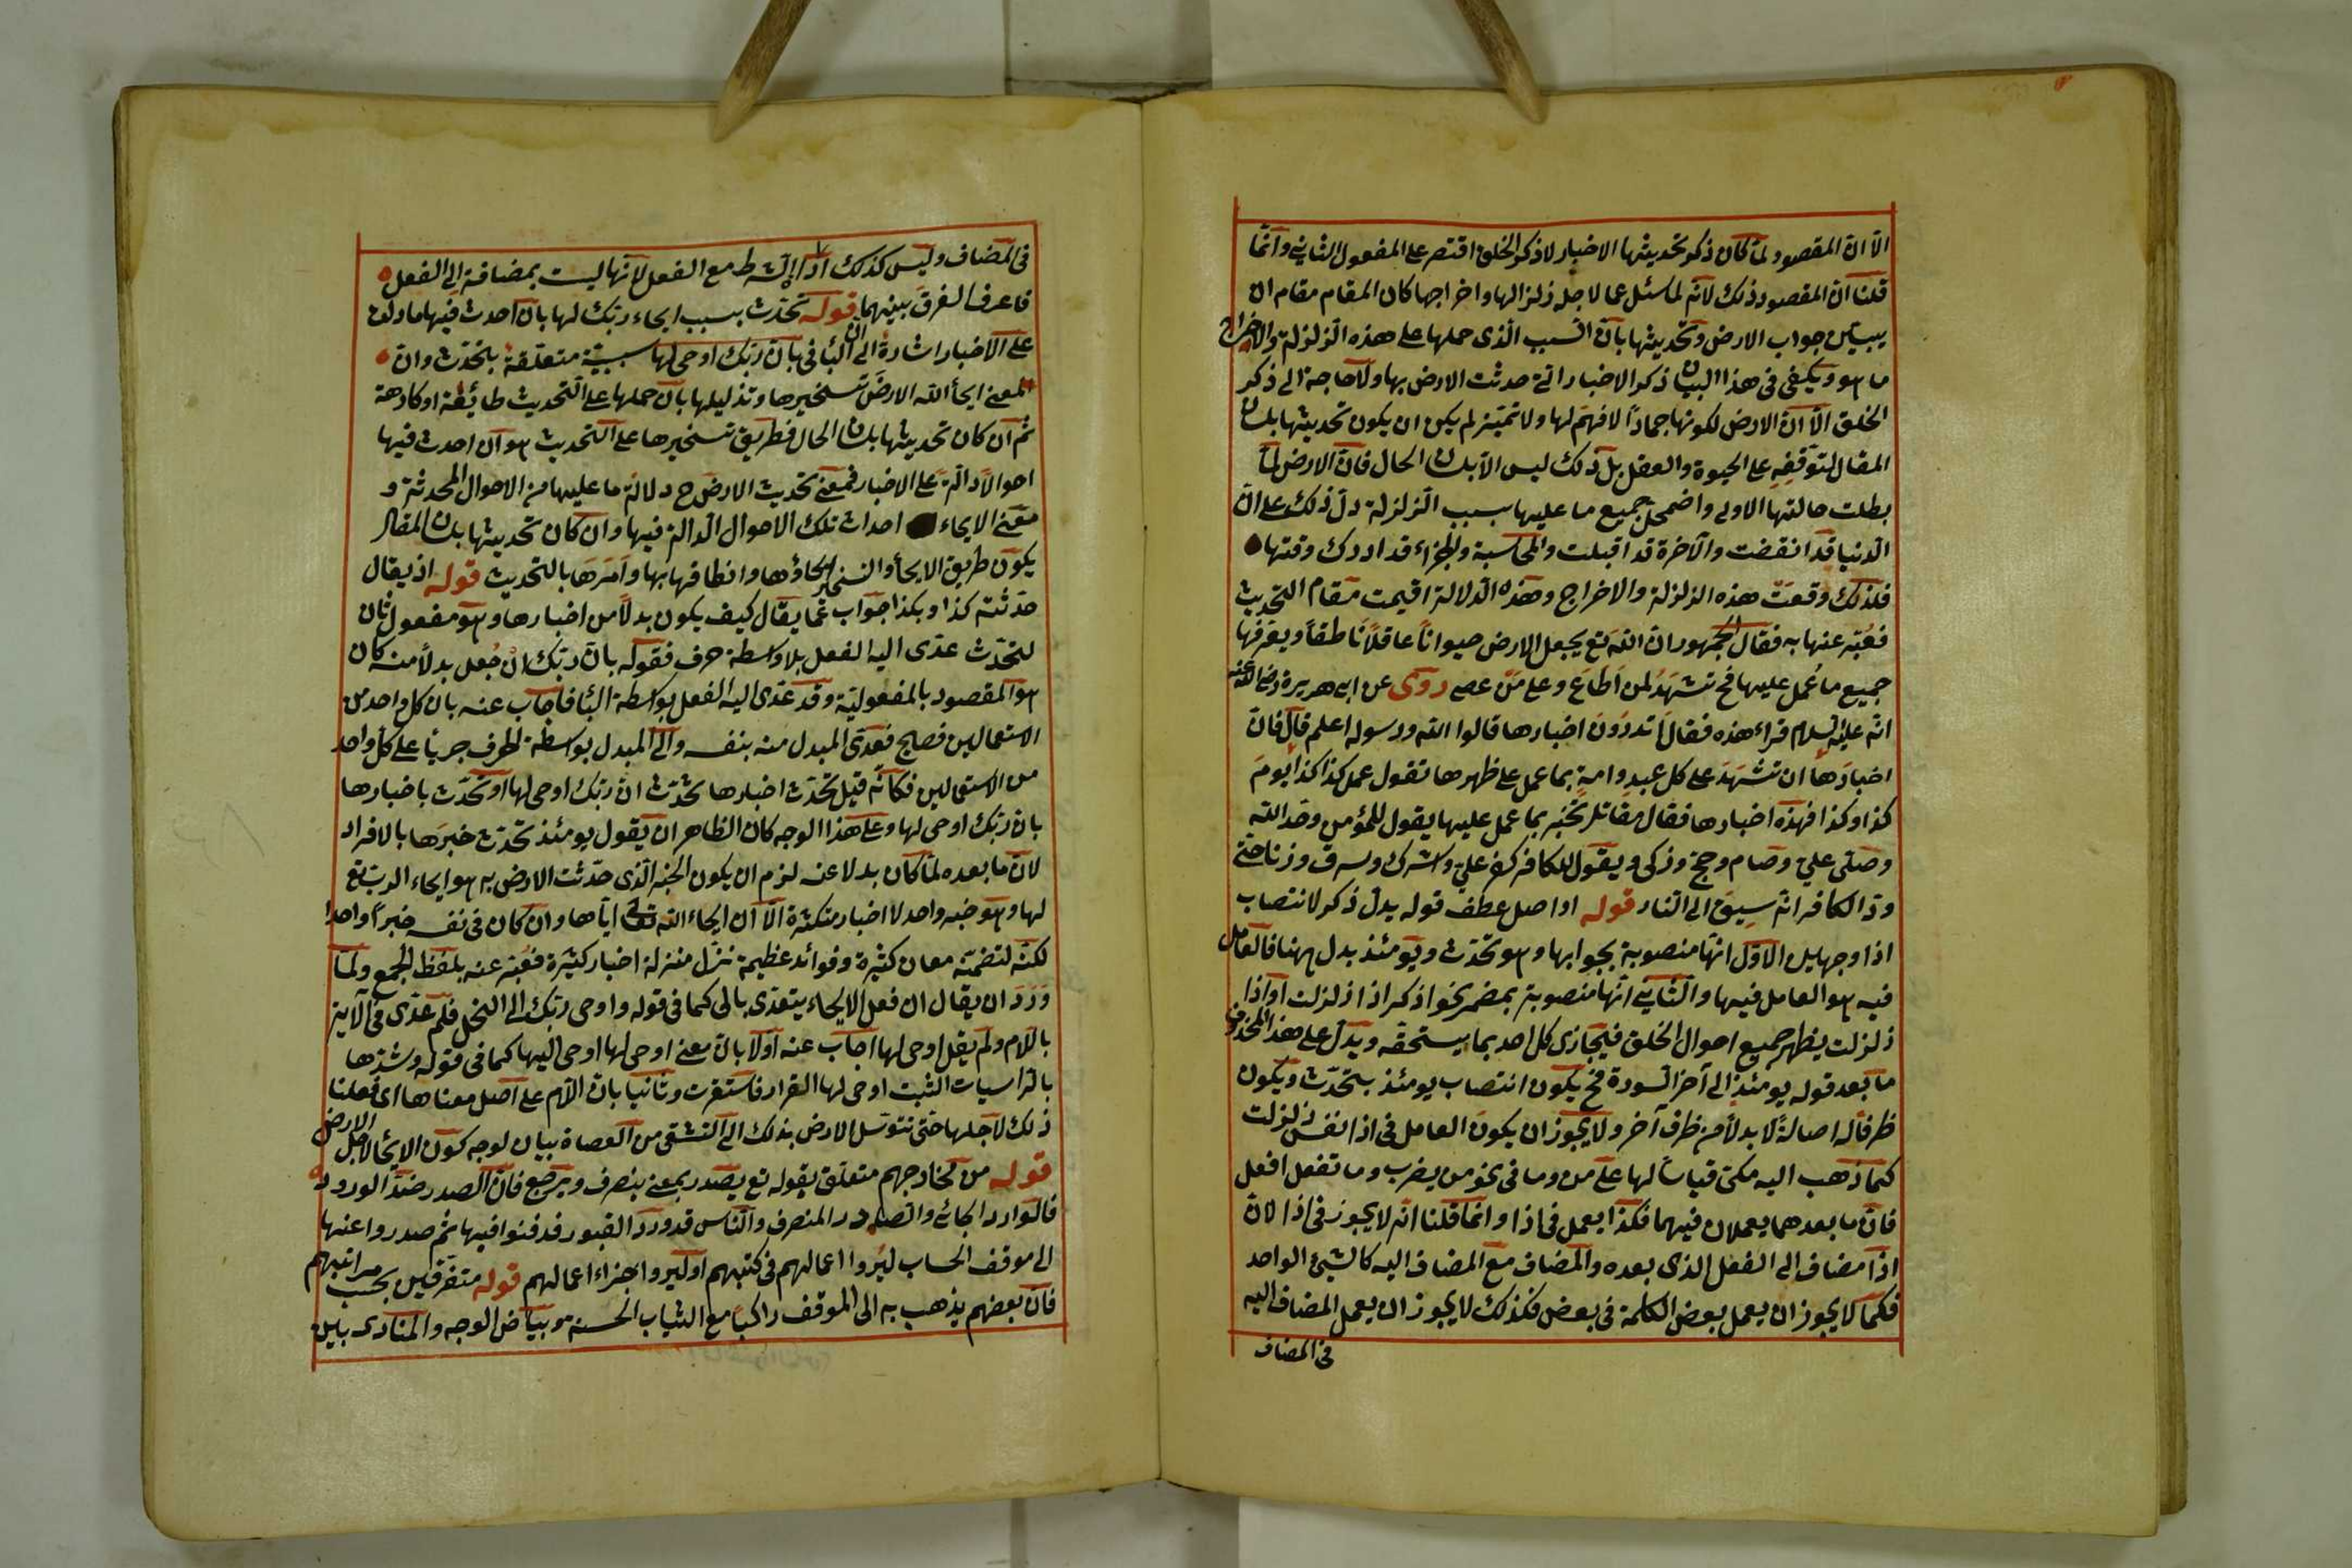 الا ان المقصود لما كان ذكر تحديثها الاخبار لا ذكر الخلق اقتصر على المفعول الثاني وانما
قلنا ان المقصود ذلك لانه لما سئل عما لاجله زلزالها واخراجها كان المقام مقام ان
يبين جواب الارض وتحديثها بان السبب الذى حملها على هذه الزلزلة والاخراج
ما هو ويكفى فى هذا البيان ذكر الاخبار التى حدثت الارض بها ولا حاجة الى ذكر
الخلق الا ان الارض لكونها جمادا لا فهم لها ولا تميز لم يكن ان يكون تحديثها بلسان
المقال لتوقفه على الحيوة والعقل بل ذلك ليس الا بلسان الحال فان الارض لما
بطلت حالتها الاولى واضمحل جميع ما عليها بسبب الزلزلة دل ذلك على ان
الدنيا قد انقضت والآخرة قد اقبلت والمحاسبة والجزاء قد ادرك وقتها
فلذلك وقعت هذه الزلزلة والاخراج وهذه الدلالة اقيمت مقام التحديث
فعبر عنها به فقال الجمهور ان الله تع يجعل الارض حيوانا عاقلا ناطقا ويعرفها
جميع ما عمل عليها فح تشهد لمن اطاع وعلى من عصى روى عن ابى هريرة رضى الله عنه
انه عليه السلام قراء هذه فقال اتدرون اخبارها قالوا الله ورسوله اعلم قال فان
اخبارها ان تشهد على كل عبد وامة بما عمل على ظهرها تقول عمل كذا كذا يوم
كذا وكذا فهذه اخبارها فقال مقاتل تخبر بما عمل عليها يقول للمؤمن وحد الله
وصلى على وصام وحج وزكى ويقول للكافر كفر على واشرك وسرق وزنا حتى
ود الكافر انه سيق الى النار قوله او اصل عطف قوله بدل ذكر لانتصاب
اذا وجهين الاول انها منصوبة بجوابها وهو تحدث ويومئذ بدل منها فالعامل
فيه هو العامل فيها والثانى انها منصوبة بمضمر نحو اذكر اذا زلزلت او اذا
زلزلت يظهر جميع احوال الخلق فيجازى كل احد بما يستحقه ويدل على هذا المحذوف
ما بعد قوله يومئذ الى آخر السورة فح يكون انتصاب يومئذ بتحدث ويكون
ظرفا له اصالة لا بدلا من ظرف آخر ولا يجوز ان يكون العامل فى اذا نفس زلزلت
كما ذهب اليه مكى قياسا لها على من وما فى نحو من يضرب وما تفعل افعل
فان ما بعدهما يعملان فيهما فكذا يعمل فى اذا وانما قلنا انه لا يجوز فى اذا لان
اذا مضاف الى الفعل الذى بعده والمضاف مع المضاف اليه كالشيئ الواحد
فكما لا يجوز ان يعمل بعض الكلمة فى بعض فكذلك لا يجوز ان يعمل المضاف اليه
فى المضاف
فى المضاف وليس كذلك اداة الشرط مع الفعل لانها ليست بمضافة الى الفعل
فاعرف الفرق بينهما قوله تحدث بسبب ايحاء ربك لها بان احدث فيها ما دلت
على الاخبار اشارة الى ان الباء فى بان ربك اوحى لها سببية متعلقة بتحدث وان
المعنى ايحاء الله الارض تسخيرها وتذليلها بان حملها على التحديث طائعة او كارهة
ثم ان كان تحديثها بلسان الحال فطريق تسخيرها على التحديث هو ان احدث فيها
احوالا دالة على الاخبار فمعنى تحديث الارض ح دلالة ما عليها من الاحوال المحدثة و
معنى الايحاء احداث تلك الاحوال الدالة فيها وان كان تحديثها بلسان المقال
يكون طريق الايحاء والتسخير احياؤها وانطاقها بها وامرها بالتحديث قوله اذ يقال
حدثته كذا وبكذا جواب عما يقال كيف يكون بدلا من اخبارها وهو مفعول ثان
لتحدث عدى اليه الفعل بلا واسطة حرف فقوله بان ربك ان جعل بدلا منه كان
هو المقصود بالمفعولية وقد عدى اليه الفعل بواسطة الباء فاجاب عنه بان كل واحد من
الاستعمالين فصيح فعدى المبدل منه بنفسه والى المبدل بواسطة الحرف جريا على كل واحد
من الاستعمالين فكانه قيل تحدث اخبارها تحدث ان ربك اوحى لها او تحدث باخبارها
بان ربك اوحى لها وعلى هذا الوجه كان الظاهر ان يقول يومئذ تحدث خبرها بالافراد
لان ما بعده لما كان بدلا عنه لزم ان يكون الخبر الذى حدثت الارض به هو ايحاء الرب تع
لها وهو خبر واحد لا اخبار متكثرة الا ان ايحاء الله تعالى اياها وان كان فى نفسه خبرا واحدا
لكنه لتضمنه معان كثيرة وفوائد عظيمة نزل منزلة اخبار كثيرة فعبر عنه بلفظ الجمع ولما
ورد ان يقال ان فعل الايحاء يتعدى بالى كما فى قوله واوحى ربك الى النحل فلم عدى فى الآية
باللام ولم يقل اوحى لها اجاب عنه اولا بان معنى اوحى لها اوحى اليها كما فى قوله وشدها
بالراسيات الثبت اوحى لها القرار فاستقرت وثانيا بان اللام على اصل معناها اى فعلنا
ذلك لاجلها حتى تتوسل الارض بذلك الى التشفى من العصاة بيان لوجه كون الايحاء لاجل الارض
قوله من مخارجهم متعلق بقوله تع يصدر بمعنى ينصرف ويرجع فان الصدر ضد الورود
فالوارد الجائى والصادر المنصرف والناس قد وردوا القبور فدفنوا فيها ثم صدروا عنها
الى موقف الحساب ليروا اعمالهم فى كتبهم او ليروا جزاء اعمالهم قوله متفرقين بحسب مراتبهم
فان بعضهم يذهب به الى الموقف راكبا مع الثياب الحسنة وبياض الوجه والمنادى بين